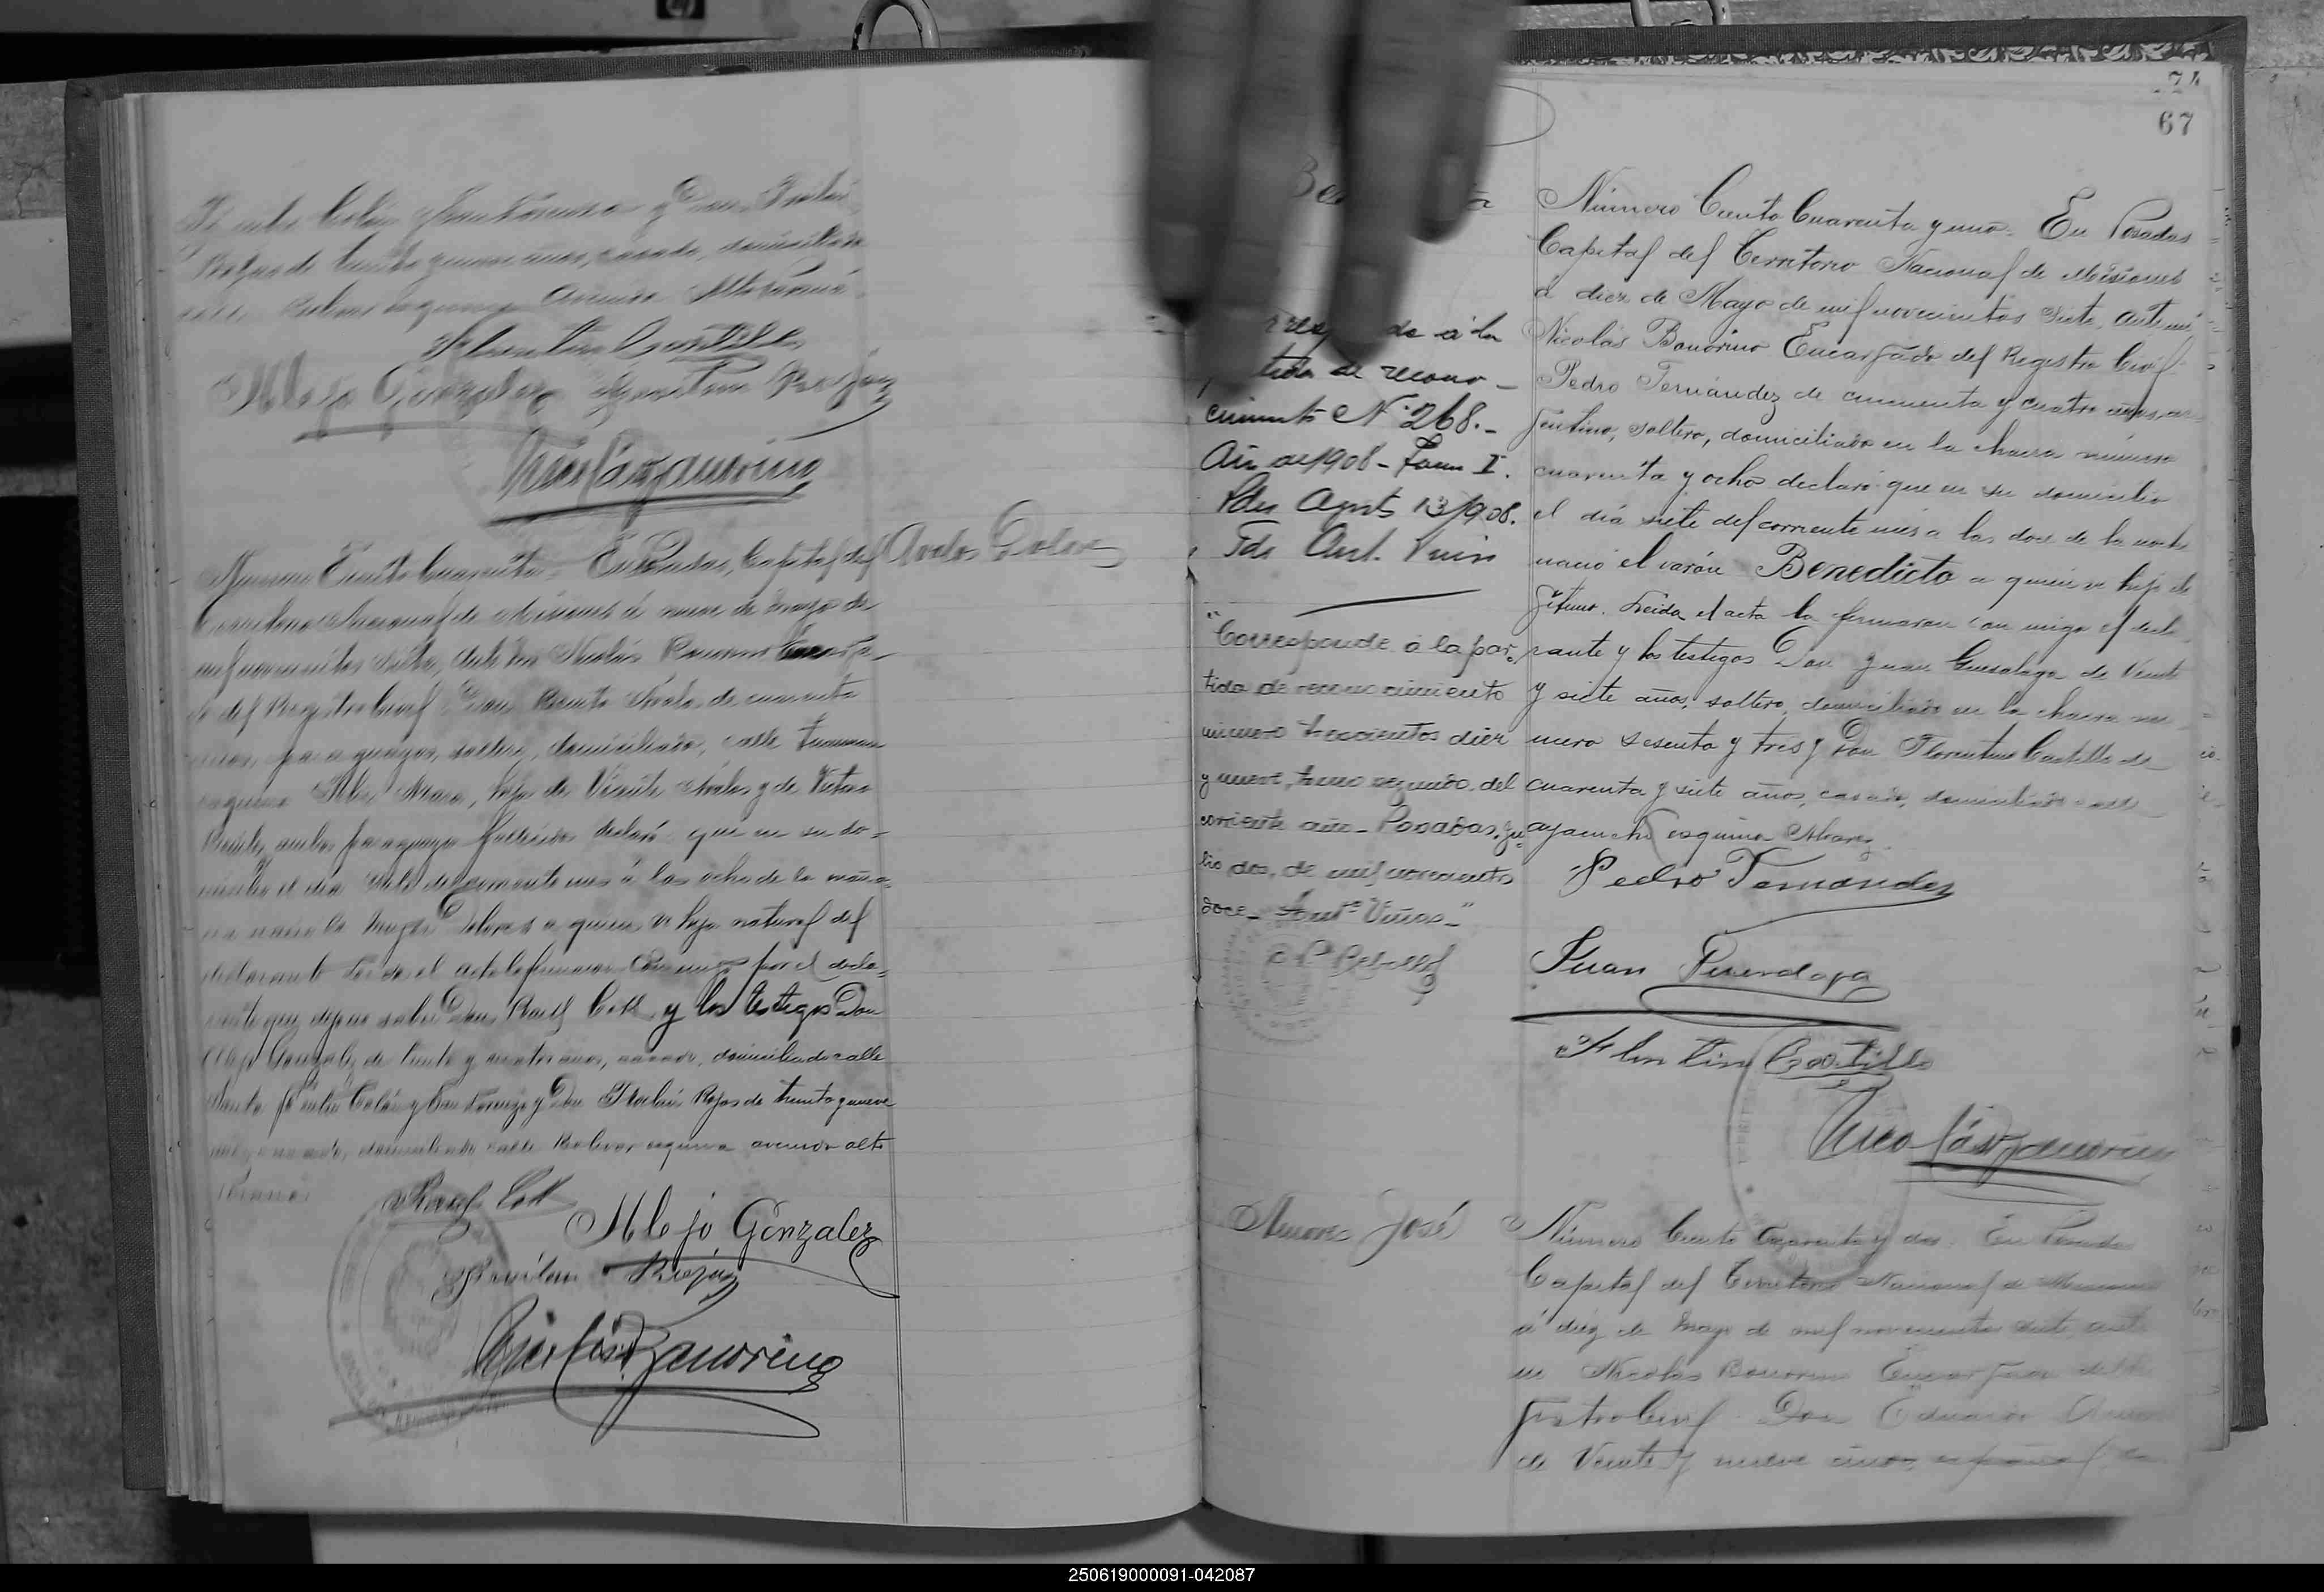 Fé entre Colón y San Lorenzo y Don
Rojas de treinta y nueve años, casado, domiciliado
calle Bolivar esquina Avenida Alto Paraná
Florentino Castillo
Alejo Gonzalez Rojas
Nicolás Bonorino
Avalos Dolores
Número Ciento Cuarenta = En Posadas, Capital del
Territorio Nacional de Misiones á nueve de Mayo de
mil novecientos siete, ante mi Nicolás Bonorino Encarga-
do del Registro Civil Don Benito Avalos de cuarenta
años, paraguayo, soltero, domiciliado, calle Tucuman
esquina, hijo de Vicente Avalos y de
ambos paraguayos fallecidos declaró que en su do-
micilio el día siete del corriente mes á las ocho de la maña-
na nació la mujer Dolores a quien ve hija natural del
declarante Leida el acta la firmaron conmigo por el decla-
rante que dijo no saber Don Raul Coll y los testigos Don
Alejo Gonzalez de treinta y cuatro años, casado, domiciliado calle
Santa Fé entre Colón y San Lorenzo y Don Rojas de treinta y nueve
años, casado, domiciliado calle Bolivar esquina avenida alto
Paraná
Raul Coll
Alejo Gonzalez
Rojas
Nicolás Bonorino
74
67
de á la
partida de recono-
cimiento Nº 268.-
Año de 1908 - Tomo I.
Pdas Agosto 13/908.
Fdo Ant. Viñas
"Corresponde á la par-
tida de reconocimiento
número trescientos diez
y nueve, tomo segundo, del
corriente año - Posadas, Ju-
lio dos, de mil novecientos
doce - Antº Viñas -"
Número Ciento Cuarenta y uno. En Posadas
Capital del Territorio Nacional de Misiones
á diez de Mayo de mil novecientos siete, ante mi
Nicolás Bonorino Encargado del Registro Civil
Pedro Fernández de cincuenta y cuatro años, ar-
gentino, soltero, domiciliado en la chacra número
cuarenta y ocho declaró que en su domicilio
el día siete del corriente mes a las dos de la noche
nació el varón Benedicto a quien ve hijo ile
gítimo. Leida el acta la firmaron con migo el decla
rante y los testigos Don Juan de Veinte
y siete años, soltero, domiciliado en la chacra nu
mero sesenta y tres y Don Florentino Castillo de
cuarenta y siete años, casado, domiciliado calle
ayacucho esquina Alvarez.
Pedro Fernandez
Juan
Florentino Castillo
Nicolás Bonorino
José
Número Ciento Cuarenta y dos. En Posadas
Capital del Territorio Nacional de Misiones
á diez de Mayo de mil novecientos siete ante
mi Nicolás Bonorino Encargado del Re
gistro Civil Don Eduardo
de Veinte y nueve años, español,
250619000091-042087